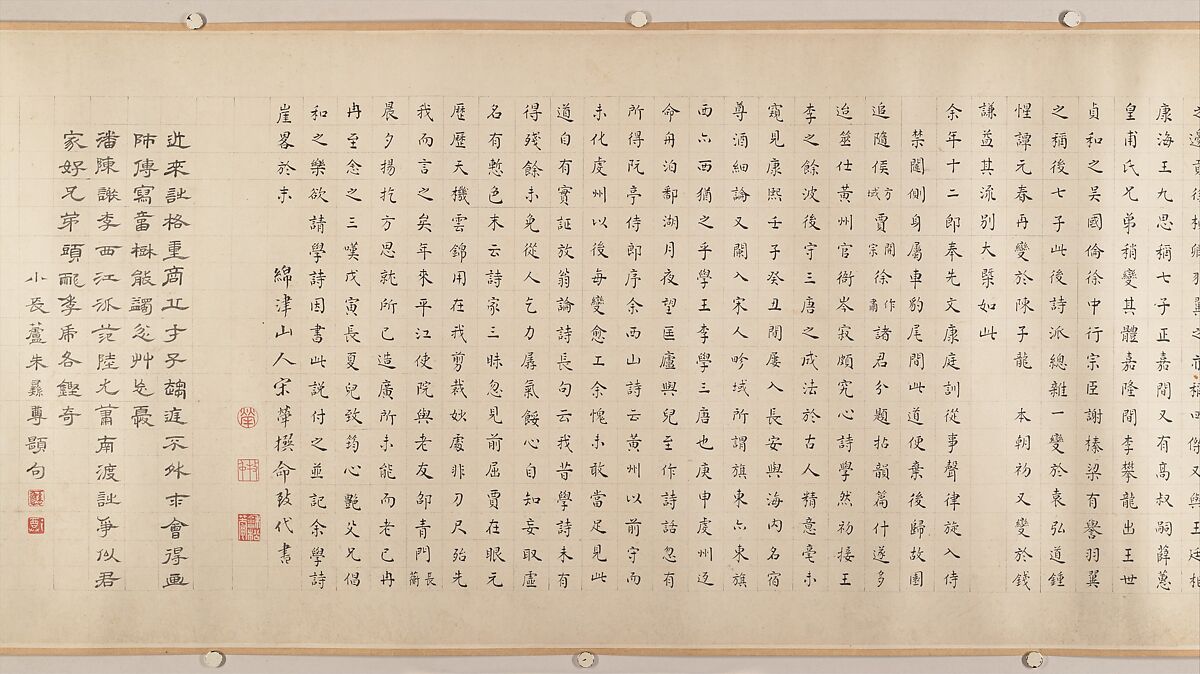 康海王九思稱七子正嘉間又有高叔嗣薛蕙
皇甫氏兄弟稍變其體嘉隆間李攀龍出王世
貞和之吳國倫徐中行宗臣謝榛梁有譽羽翼
之稱後七子此後詩派總雜一變於袁弘道鍾
惺譚元春再變於陳子龍 本朝初又變於錢
謙益其流別大槩如此
余年十二即奉先文康庭訓從事聲律旋入侍
禁闥側身屬車豹尾間此道便棄後歸故園
追隨侯方域賈開宗徐作肅諸君分題拈韻篇什遂多
迨筮仕黃州官衙岑寂頗究心詩學然初接王
李之餘波後守三唐之成法於古人精意毫未
窺見康熙壬子癸丑間屢入長安與海內名宿
尊酒細論又闌入宋人畛域所謂旗東亦東旗
西亦西猶之乎學王李學三唐也庚申虔州返
命舟泊鄱湖月夜望匡廬與兒至作詩話忽有
所得阮亭侍郎序余西山詩云黃州以前守而
未化虔州以後每變愈工余愧未敢當足見此
道自有實証放翁論詩長句云我昔學詩未有
得殘餘未免從人乞力孱氣餒心自知妄取虛
名有慙色末云詩家三昧忽見前屈賈在眼元
歷歷天機雲錦用在我剪裁妙處非刀尺殆先
我而言之矣年來平江使院與老友邵青門長蘅
晨夕揚扢方思就所已造廣所未能而老已冉
冉至念之三嘆戊寅長夏兒致筠心艷父兄倡
和之樂欲請學詩因書此說付之並記余學詩
崖畧於末
綿津山人宋犖撰命致代書
近來詩格重商丘才子
師傳寫
潘陳 李西江派范陸尤蕭南渡詩爭似君
家好兄弟頭 各 奇
小長蘆朱彝尊題句